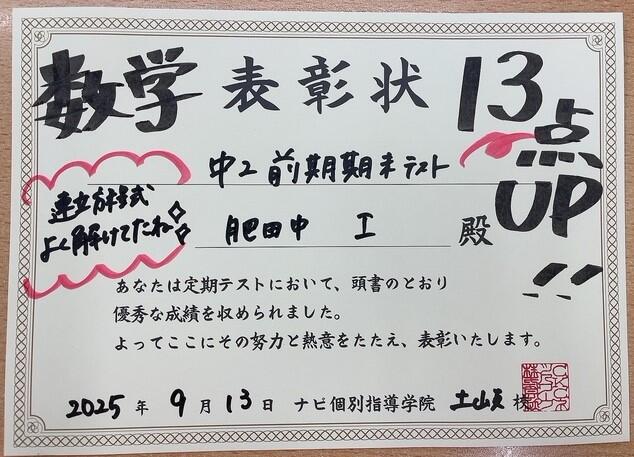 数学 表彰状 13点UP!!
中2 前期期末テスト
連立方程式
よく解けてたね
肥田中 I 殿
あなたは定期テストにおいて、頭書のとおり
優秀な成績を収められました。
よってここにその努力と熱意をたたえ、表彰いたします。
2025年9月13日 ナビ個別指導学院 土山 校